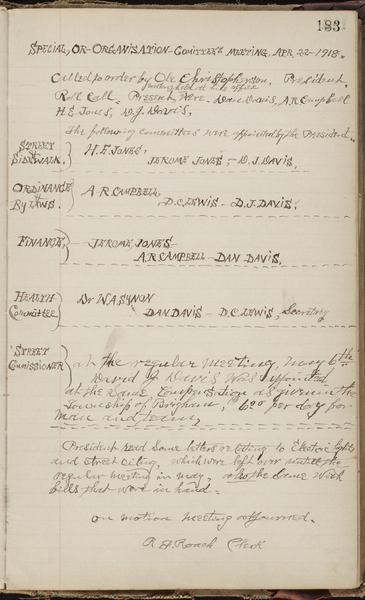 183
SPECIAL, OR-ORGANISATION-COMITTEE'S MEETING, APR. 22-1918.
Called to order by Ole Christopherson, President,
meeting held at his office
Roll Call. Present, Were. Dave Davis, A.R. Campbell
H.E. Jones, D.J. Davis,
The following committees were appointed by the President.
STREET & SIDEWALK. } H.E. JONES,
JEROME JONES, - D.J. DAVIS.
ORDINANCE & By LAWS. } A.R. CAMPBELL
D.C. LEWIS - D.J. DAVIS.
FINANCE, } JEROME JONES
A.R. CAMPBELL - DAN DAVIS.
HEALTH Committee } Dr W.A. SYNON
DAN DAVIS - D.C. LEWIS, Secretary
STREET COMISSIONER } at the regular meeting, may 6th
David J Davis Was appointed
at the same Compensation as given in the
Township of Brigham, 6.00 per day for
man and team,
President read some letters relating to Electric lights
and street oiling, which were left over untill the
regular meeting in may, also the same With
bills that were in hand.
on motion meeting adjourned.
R A Roach Clerk